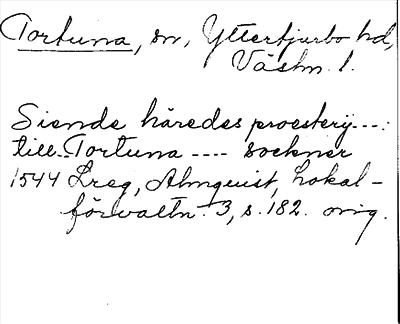 Tortuna, sn, Yttertjurbo hd,
Västm. l.
Siende häredes proesterij---:
till..Tortuna ---- sockner
1544 Lreg, Almquist, Lokal-
förvaltn. 3, s. 182. orig.